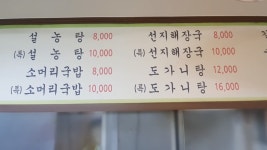 설농탕 8,000
(특) 설농탕 10,000
소머리국밥 8,000
(특) 소머리국밥 10,000
선지해장국 8,000
(특) 선지해장국 10,000
도가니탕 12,000
(특) 도가니탕 16,000